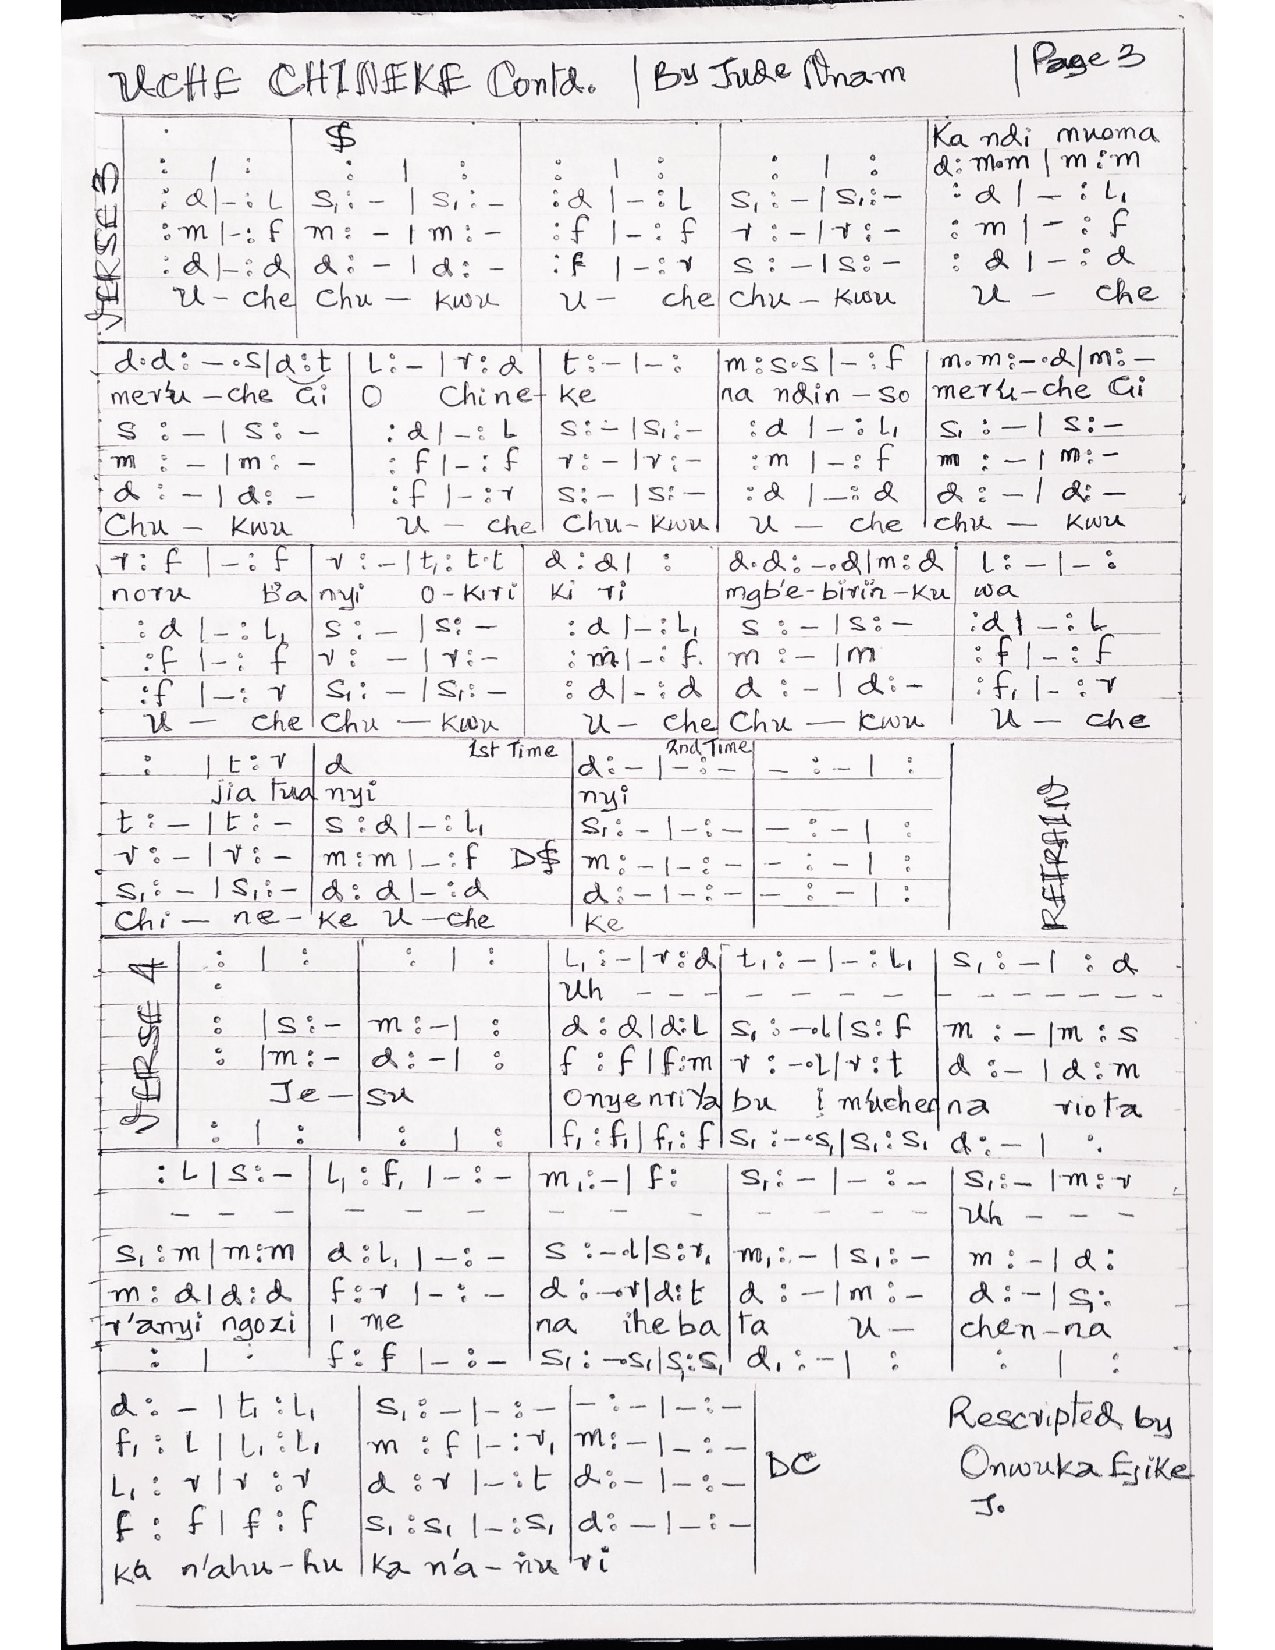 UCHE CHINEKE Contd. | By Jude Nnam | Page 3
VERSE 3
$
Ka ndi muoma
: | : : | : : | : : | : d: m.m | m : m
: d | – : L s₁ : – | s₁ : – : d | – : L s₁ : – | s₁ : – : d | – : L₁
: m | – : f m : – | m : – : f | – : f r : – | r : – : m | – : f
: d | – : d d : – | d : – : f | – : r s : – | s : – : d | – : d
U – che Chu – kwu U – che Chu – kwu U – che
d.d : – . s | d : t L : – | r : d t : – | – : m : s.s | – : f m.m : – . d | m : –
mer'u – che Gi O Chine – ke na ndin – so mer'u – che Gi
s : – | s : – : d | – : L s : – | s₁ : – : d | – : L₁ s₁ : – | s : –
m : – | m : – : f | – : f r : – | r : – : m | – : f m : – | m : –
d : – | d : – : f | – : r s : – | s : – : d | – : d d : – | d : –
Chu – kwu U – che Chu – kwu U – che chu – kwu
r : f | – : f r : – | t₁ : t.t d : d | : d.d : – . d | m : d L : – | – :
noru Ba nyi o – kiri ki ri mgb'e – birin – ku wa
: d | – : L₁ s : – | s : – : d | – : L₁ s : – | s : – : d | – : L
: f | – : f r : – | r : – : m | – : f. m : – | m : f | – : f
: f | – : r s₁ : – | s₁ : – : d | – : d d : – | d : – : f₁ | – : r
U – che Chu – kwu U – che Chu – kwu U – che
1st Time 2nd Time
: | t : r d d : – | – : – – : – | :
jia tua nyi nyi
t : – | t : – s : d | – : L₁ s₁ : – | – : – – : – | :
r : – | r : – m : m | – : f D$ m : – | – : – – : – | :
s₁ : – | s₁ : – d : d | – : d d : – | – : – – : – | :
Chi – ne – ke U – che ke
REFRAIN
VERSE 4
: | : : | : L₁ : – | r : d t₁ : – | – : L₁ s₁ : – | : d
Uh – – – – – – – – – – – – –
: | s : – m : – | : d : d | d : L s₁ : – .l | s : f m : – | m : s
: | m : – d : – | : f : f | f : m r : – .l | r : t d : – | d : m
Je – su Onyenriya bu i muchen na riota
: | : : | : f₁ : f₁ | f₁ : f s₁ : – . s₁ | s₁ : s₁ d : – | :
: L | s : – L₁ : f₁ | – : – m₁ : – | f : s₁ : – | – : – s₁ : – | m : r
– – – – – – – – – – – – Uh – – –
s₁ : m | m : m d : L₁ | – : – s : – .l | s : r₁ m₁ : – | s₁ : – m : – | d :
m : d | d : d f : r | – : – d : – .r | d : t d : – | m : – d : – | s₁ :
r'anyi ngozi i me na iheba ta u – chen – na
: | : f : f | – : – s₁ : – . s₁ | s₁ : s₁ d₁ : – | : : | :
d : – | t₁ : L₁ s₁ : – | – : – – : – | – : –
f₁ : L | L₁ : L₁ m : f | – : r₁ m : – | – : –
L₁ : r | r : r d : r | – : t d : – | – : –
f : f | f : f s₁ : s₁ | – : s₁ d : – | – : –
ka n'ahu – hu ka n'a – ñu ri
DC
Rescripted by
Onwuka Ejike
J.